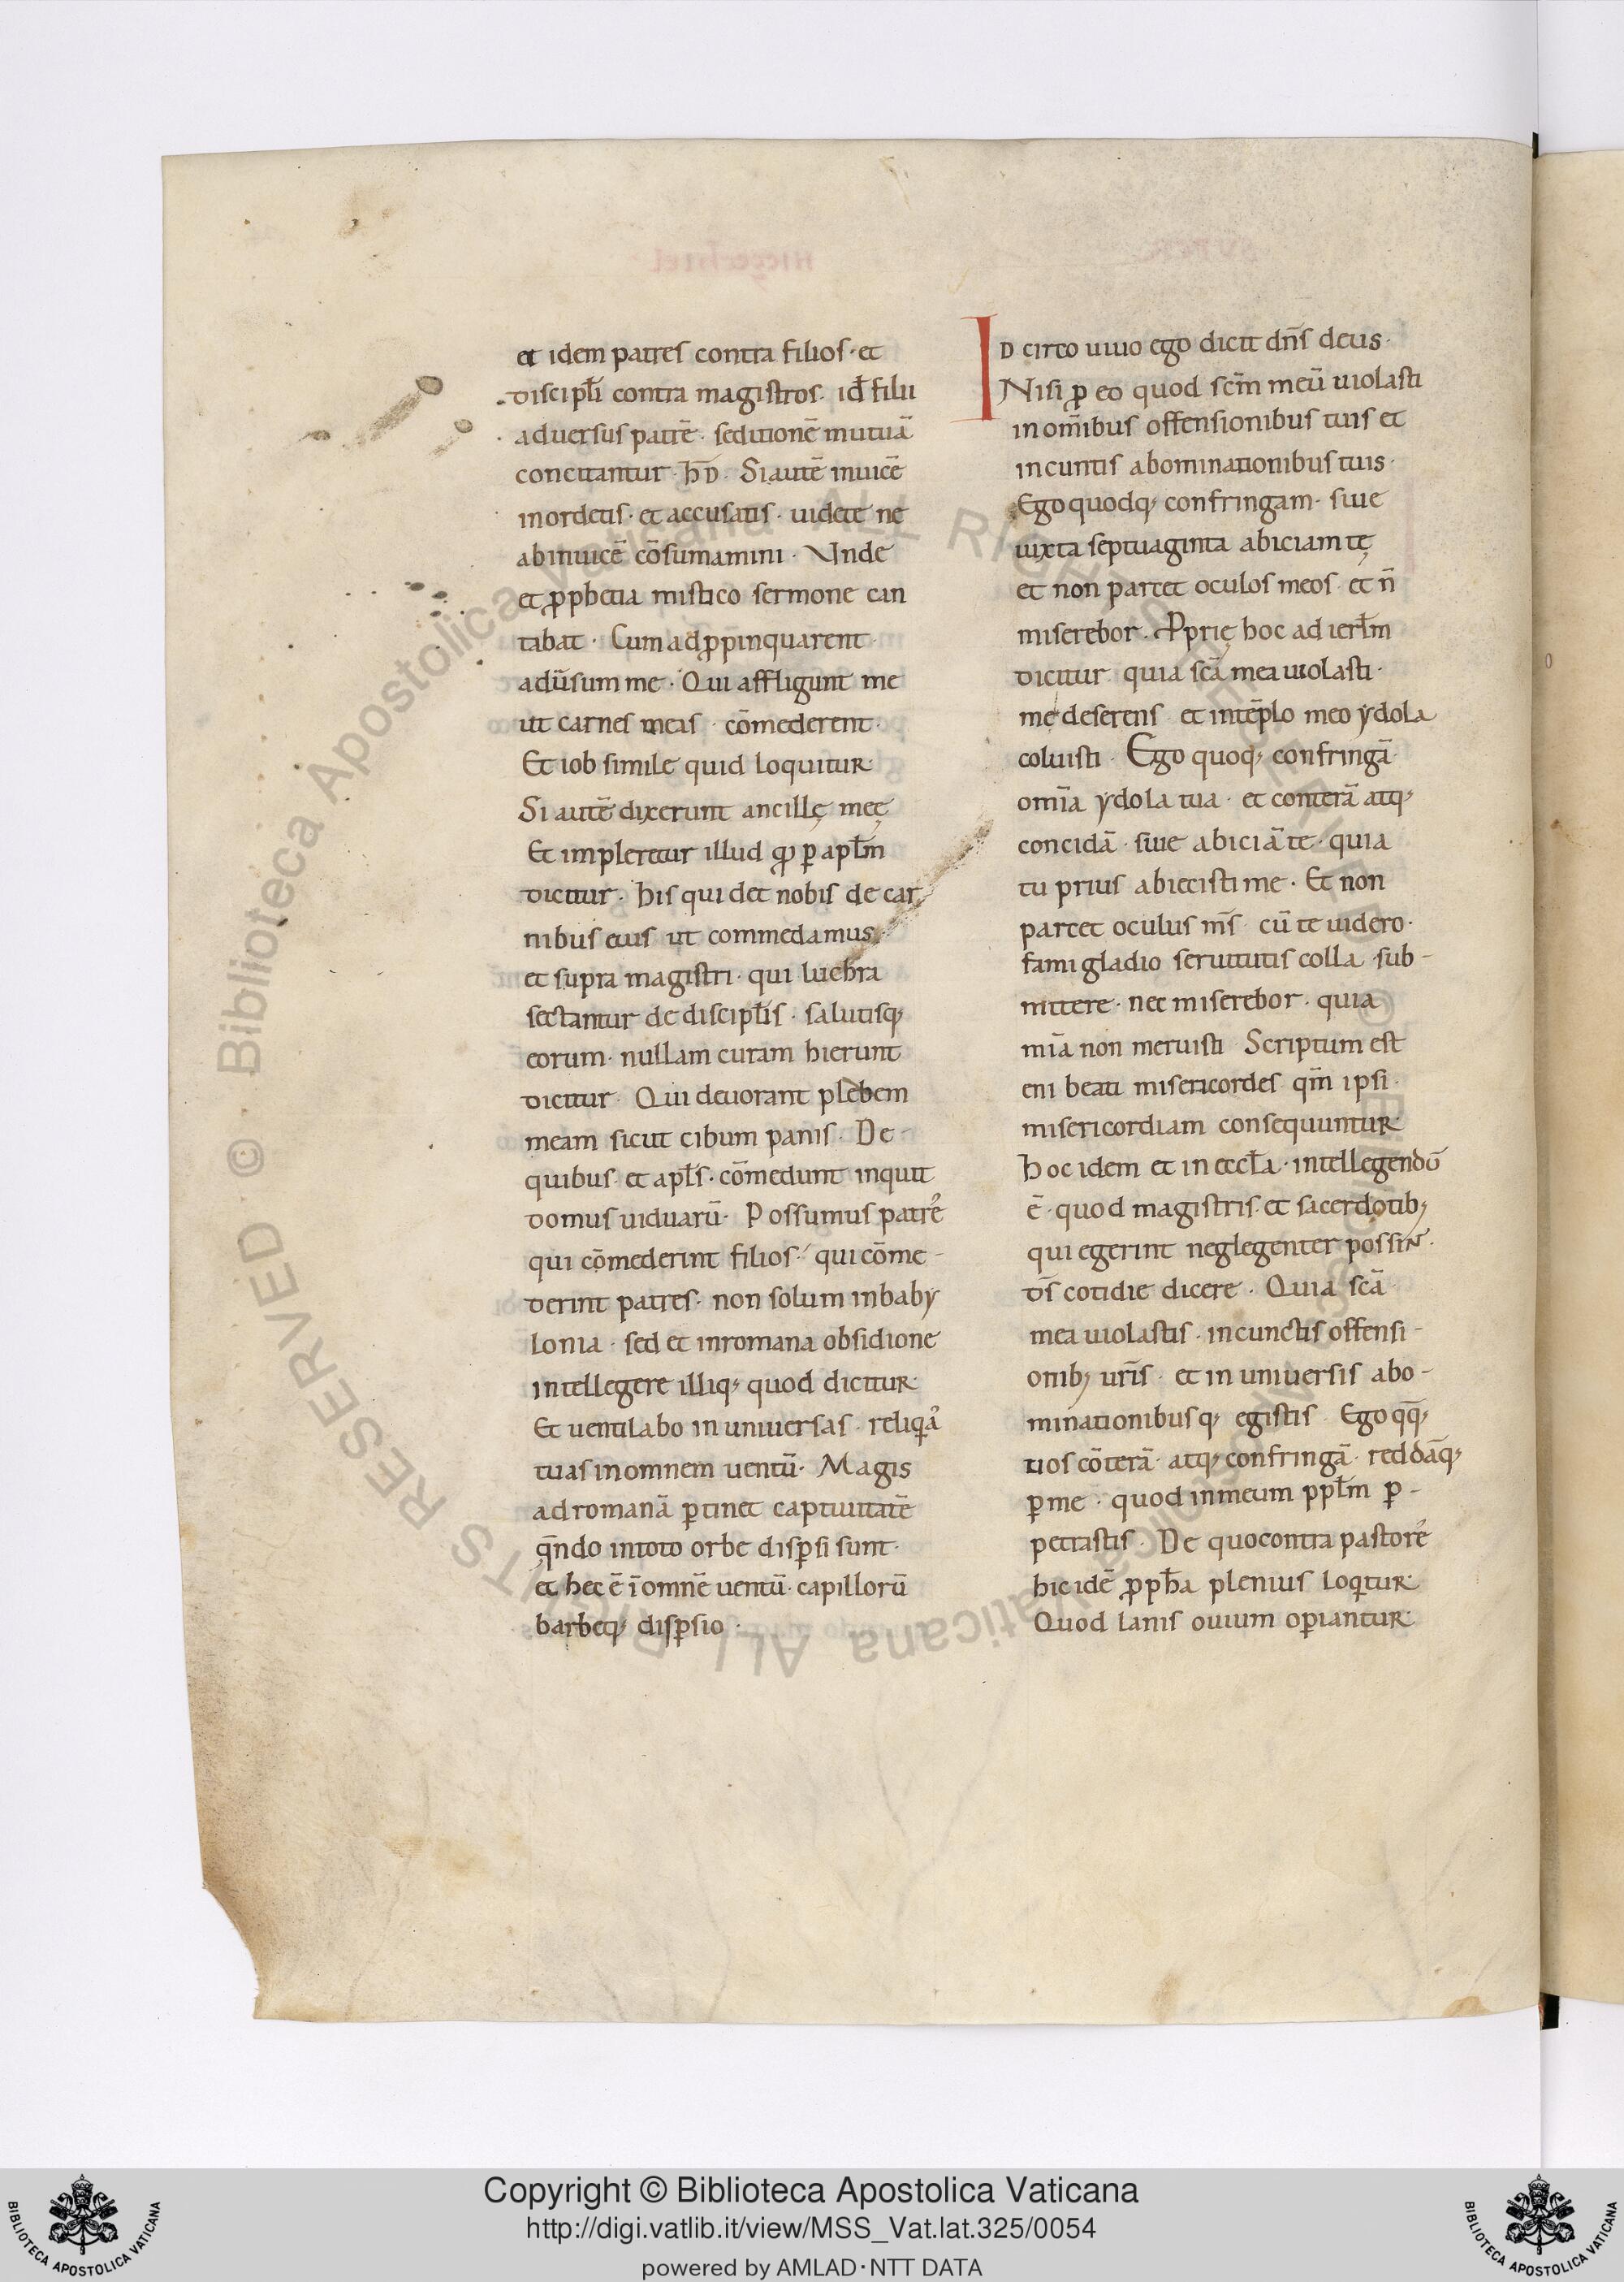 et idem patres contra filios · et
discipl̄i contra magistros · id̄ filii
aduersus patrē · seditionē mutuā
concitantur · h̄D · Si autē inuicē
mordetis · et accusatis · uidete ne
abinuicē cōsumamini · Vnde
et ꝓphetia mistico sermone can
tabat · Cum adꝓpinquarent
adūsum me · Qui affligunt me
ut carnes meas cōmederent ·
Et iob simile quid loquitur
Si autē dixerunt ancillę meę
Et impleretur illud qđ ꝑ apl̄m
dicitur · his qui det nobis de car
nibus eius ut commedamus ·
et supra magistri · qui luchra
sectantur de discipl̄is · salutisq;
eorum · nullam curam hierunt
dicitur · Qui deuorant plebem
meam sicut cibum panis · De
quibus · et apl̄s · cōmedunt inquit
domus uiduarū · Possumus patrē
qui cōmederint filios · qui cōme-
derint patres · non solum inbaby
lonia · sed et inromana obsidione
intellegere illiq; quod dicitur
Et uentilabo in uniuersas · reliqⁱa
tuas inomnem uentū · Magis
ad romanā ꝑtinet captiuitatē
qn̄do intoto orbe disꝑsi sunt ·
et hec ē īomnē uentū · capillorū
barbeq; disꝑsio ·
ID circo uiuo ego dicit dn̄s deus ·
Nisi ꝓ eo quod scm̄ meū uiolasti
in om̄ibus offensionibus tuis et
incuntis abominationibus tuis ·
Ego quodq; confringam · siue
iuxta septuaginta abiciam tę
et non parcet oculos meos · et n̄
miserebor · Ꝓprię hoc ad ierl̄m
dicitur · quia scā mea uiolasti ·
me deserens et intēplo meo ydola
coluisti · Ego quoq; confringā ·
om̄ia ydola tua · et conterā atq;
concidā · siue abiciā te · quia
tu prius abiecisti me · Et non
parcet oculus m̄s cū te uidero ·
fami gladio seruitutis colla sub-
mittere · nec miserebor · quia
mīa non meruisti Scriptum est
eni beati misericordes qm̄ ipsi ·
misericordiam consequuntur
hoc idem et in eccl̄a · intellegendū
ē · quod magistris · et sacerdotib;
qui egerint neglegenter possint ·
d̄s cotidie dicere · Quia scā
mea uiolastis · incunctis offensi-
onib; ur̄is · et in uniuersis abo-
minationibus q; egistis Ego qq̄;
uos cōterā · atq; confringā · reddāq;
ꝑme · quod inmeum ppl̄m ꝑ-
petrastis · De quocontra pastorē
hic idē ꝓph̄a plenius loqⁱtur
Quod lanis ouium oꝑiantur
Copyright © Biblioteca Apostolica Vaticana
http://digi.vatlib.it/view/MSS_Vat.lat.325/0054
powered by AMLAD·NTT DATA
BIBLIOTECA APOSTOLICA VATICANA
BIBLIOTECA APOSTOLICA VATICANA
© Biblioteca Apostolica Vaticana ALL RIGHTS RESERVED